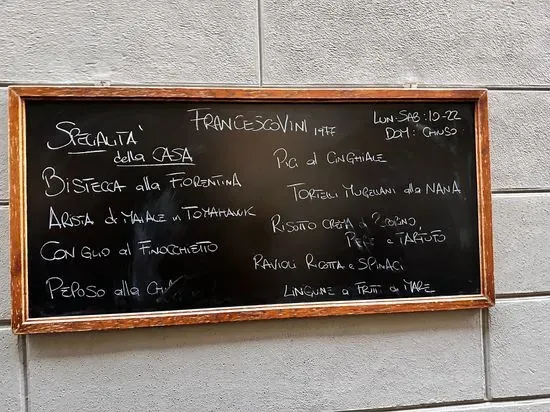 FRANCESCOVINI 1977
LUN-SAB: 10-22
DOM: CHIUSO
SPECIALITA'
della CASA
BISTECCA alla FIORENTINA
ARISTA di MAIALE in TOMAHAWK
CON GLIO al FINOCCHIETTO
PEPOSO alla
PICI al CINGHIALE
TORTELLI MUGELLANI alla NANA
RISOTTO CREMA di
PEPE e TARTUFO
RAVIOLI RICOTTA e SPINACI
LINGUINE ai FRUTTI di MARE